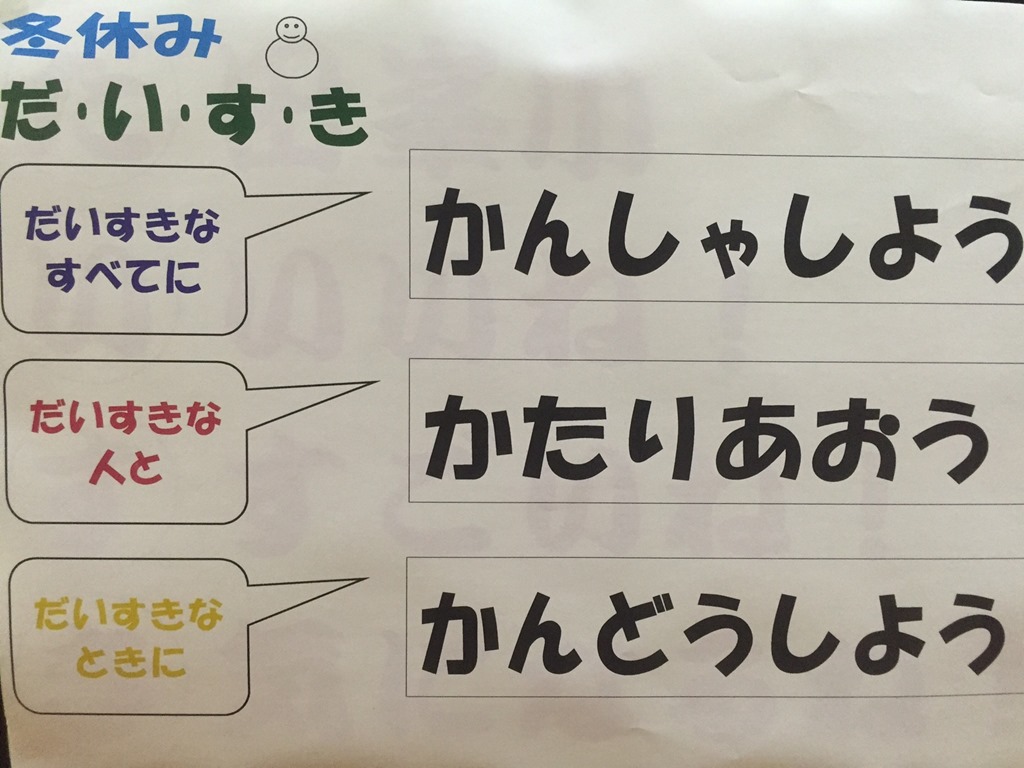 冬休み
だ・い・す・き
だいすきな
すべてに
かんしゃしよう
だいすきな
人と
かたりあおう
だいすきな
ときに
かんどうしよう